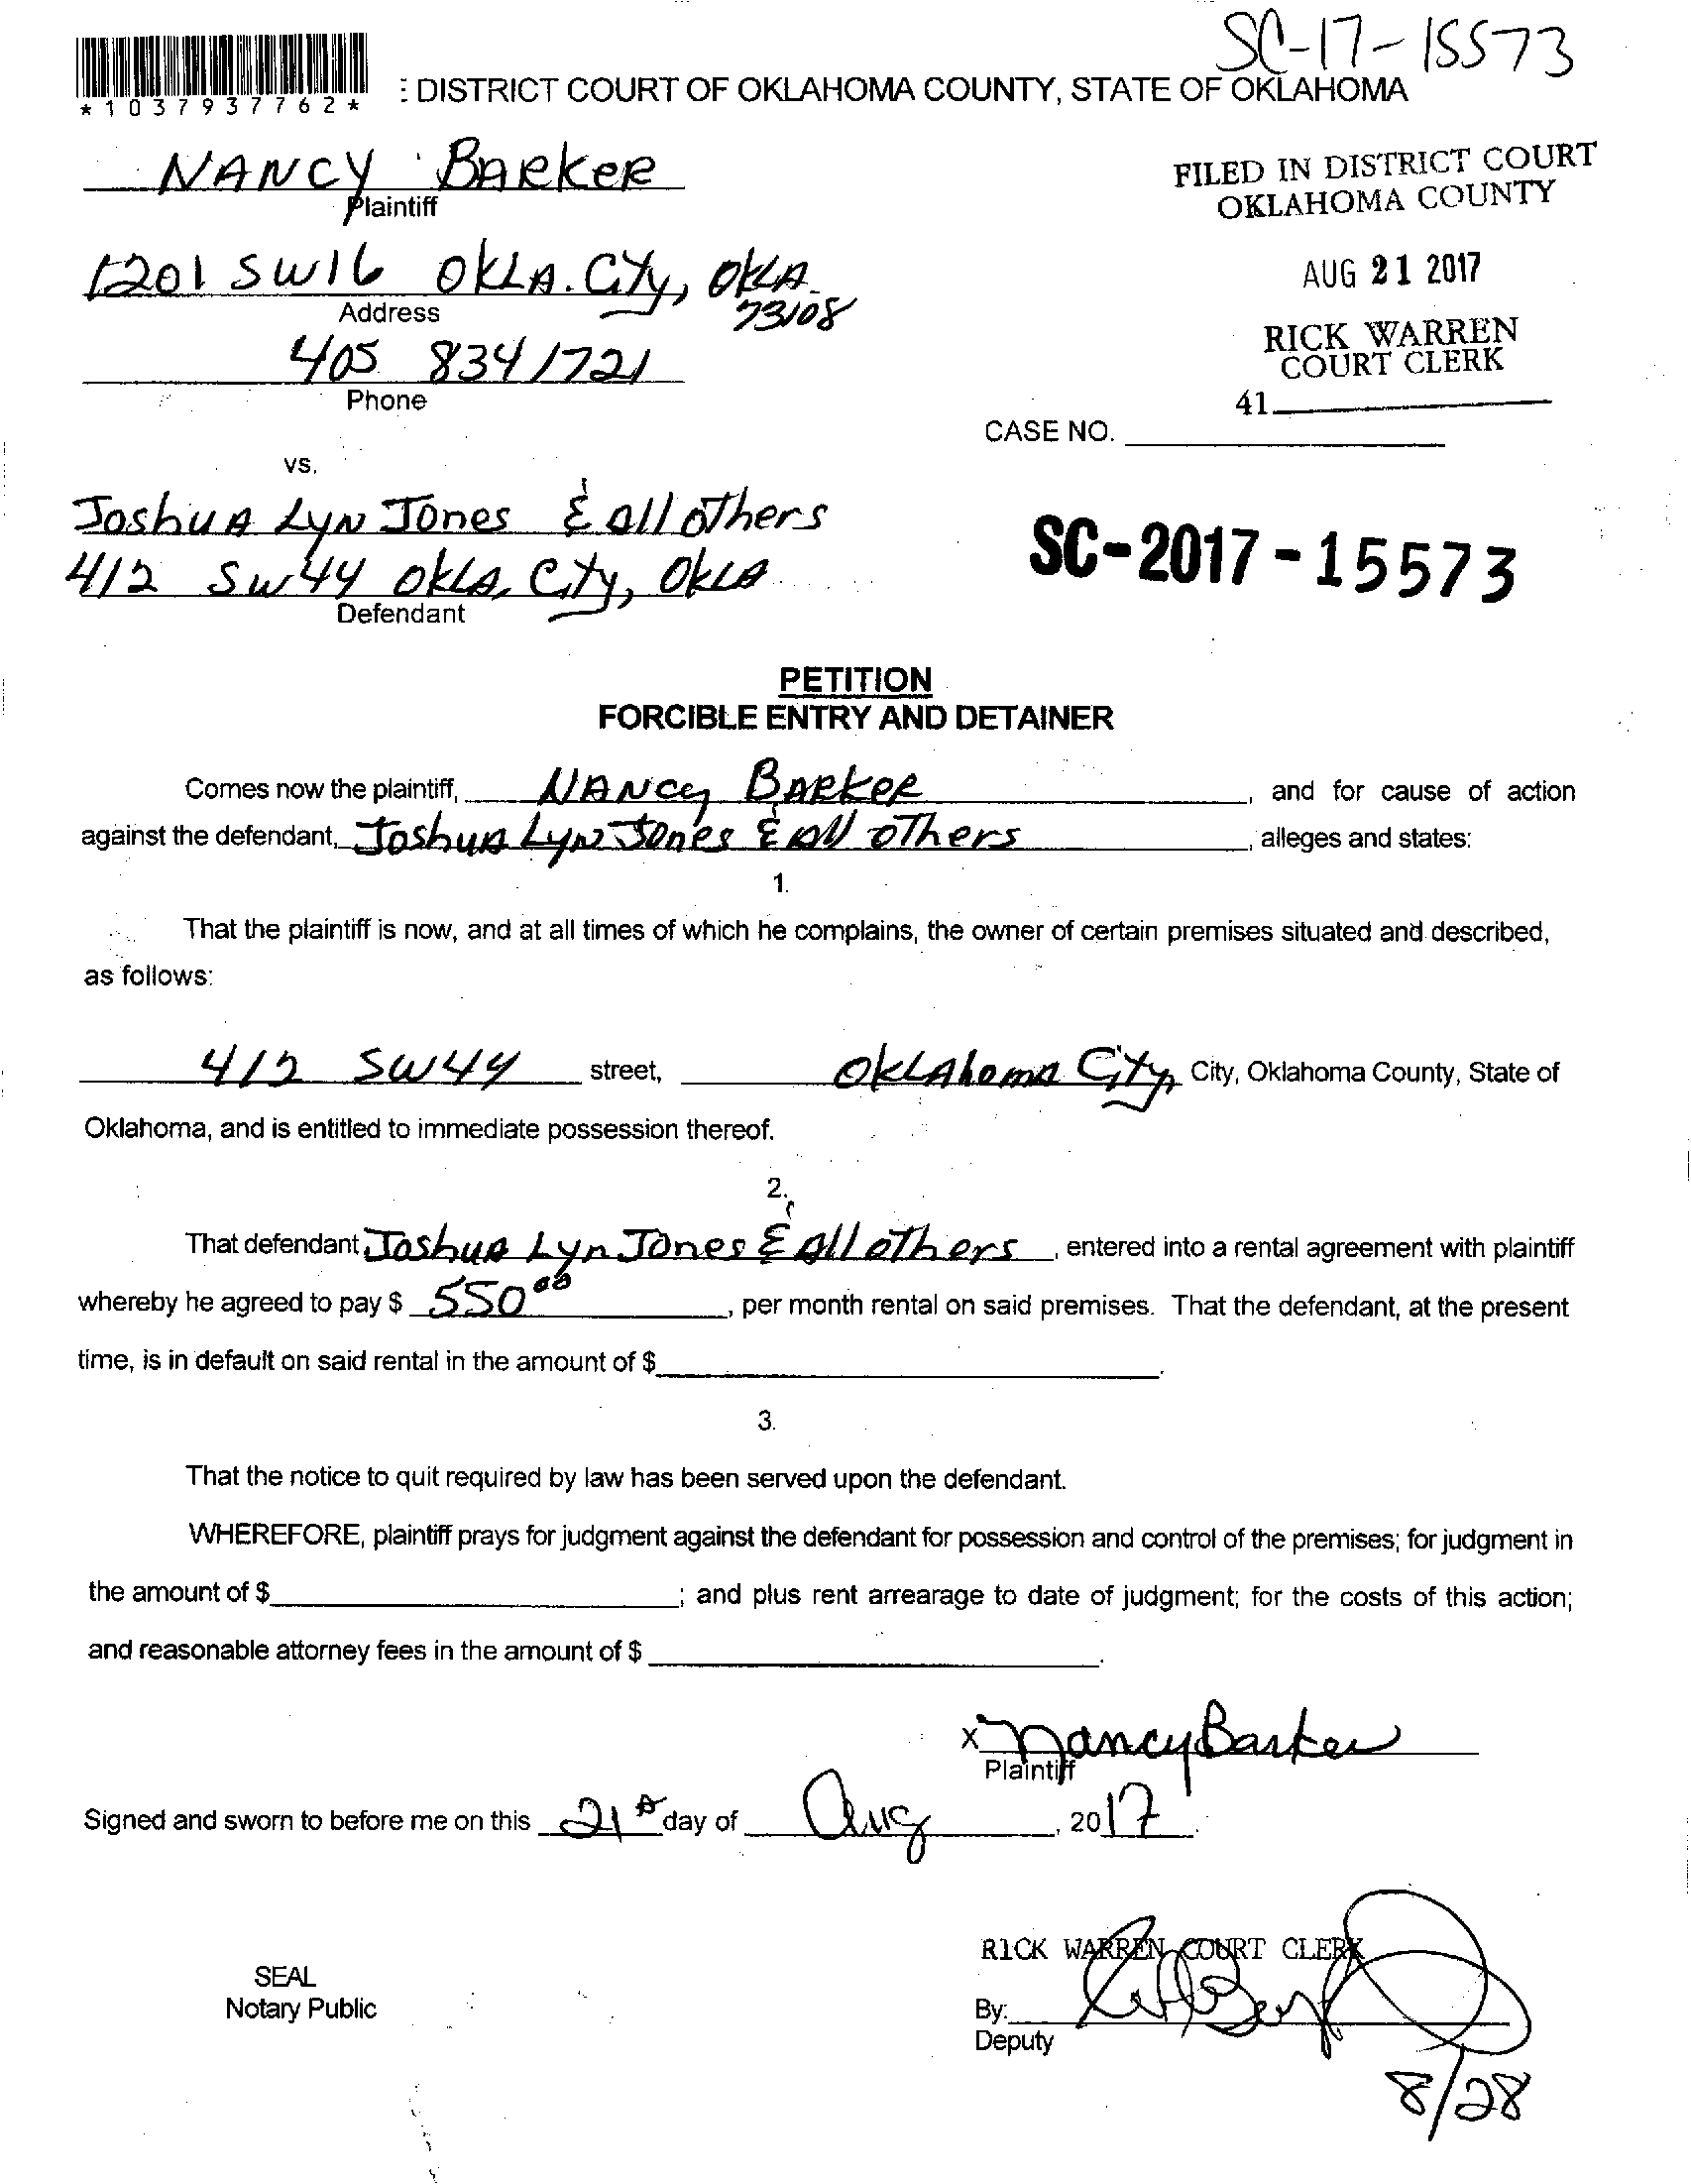 SC-17-15573
*1037937762*
: DISTRICT COURT OF OKLAHOMA COUNTY, STATE OF OKLAHOMA
NANCY BARKER
Plaintiff
FILED IN DISTRICT COURT
OKLAHOMA COUNTY
1201 SW16 OKLA. City, OKLA.
73108
Address
AUG 21 2017
405 834 1721
Phone
RICK WARREN
COURT CLERK
41
CASE NO.
vs.
Joshua Lyn Jones & all others
412 SW 44 OKLA. City, OKLA
Defendant
SC-2017-15573
PETITION
FORCIBLE ENTRY AND DETAINER
Comes now the plaintiff, NANCy BARKER, and for cause of action
against the defendant, Joshua Lyn Jones & All others, alleges and states:
1.
That the plaintiff is now, and at all times of which he complains, the owner of certain premises situated and described,
as follows:
412 SW 44 street, OKLAhoma City, City, Oklahoma County, State of
Oklahoma, and is entitled to immediate possession thereof.
2.
That defendant Joshua Lyn Jones & All others, entered into a rental agreement with plaintiff
whereby he agreed to pay $ 550 00, per month rental on said premises. That the defendant, at the present
time, is in default on said rental in the amount of $ .
3.
That the notice to quit required by law has been served upon the defendant.
WHEREFORE, plaintiff prays for judgment against the defendant for possession and control of the premises; for judgment in
the amount of $ ; and plus rent arrearage to date of judgment; for the costs of this action;
and reasonable attorney fees in the amount of $ .
X Nancy Barker
Plaintiff
Signed and sworn to before me on this 21st day of Aug, 2017.
RICK WARREN COURT CLERK
SEAL
Notary Public
By:
Deputy
8/28